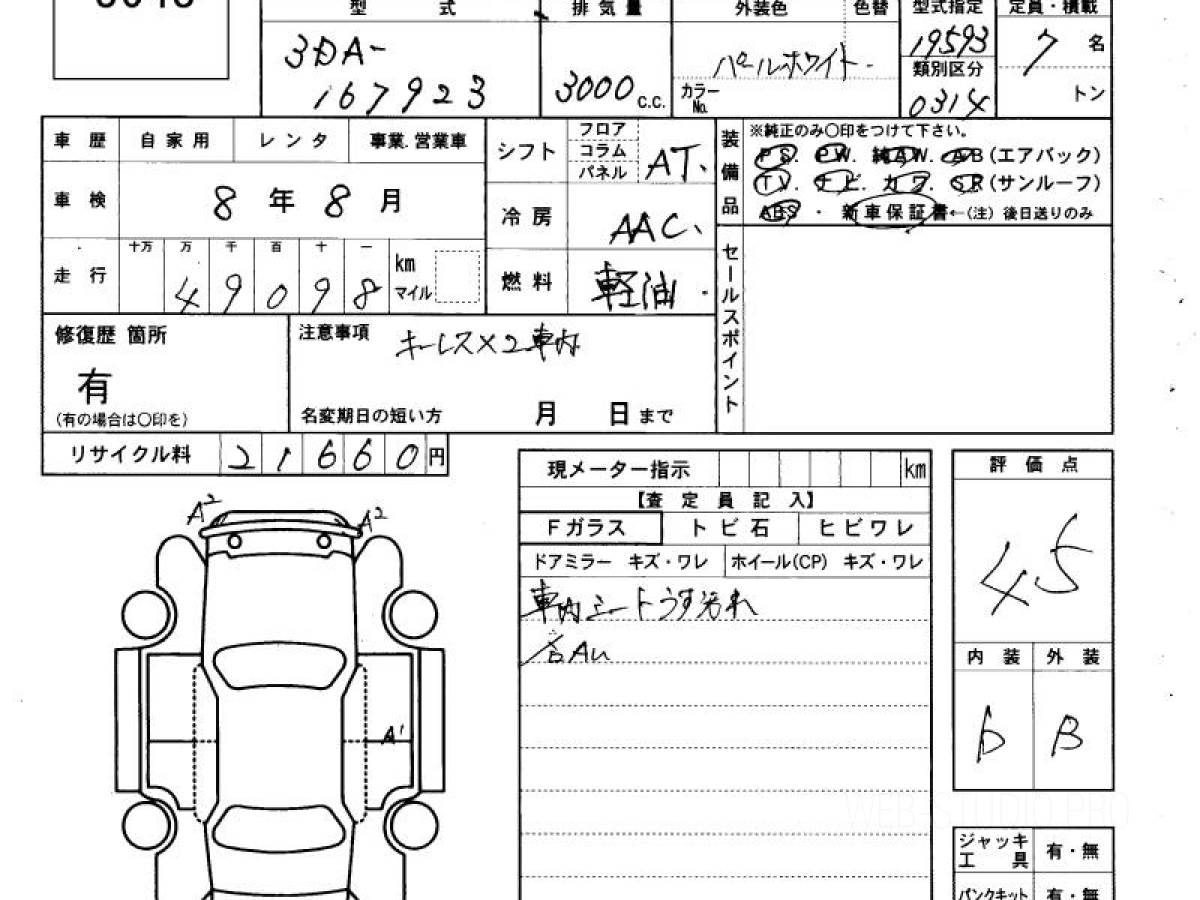 型 式 排 気 量 外装色 色替 型式指定 定員・積載
3DA-
167923
3000 c.c.
パールホワイト
カラーNo.
19593
類別区分
0314
7 名
トン
車 歴 自 家 用 レ ン タ 事業.営業車
車 検 8 年 8 月
走 行 十万 万 千 百 十 一
4 9 0 9 8 km マイル
シフト フロア コラム パネル AT.
冷 房 AAC.
燃 料 軽油
装備品
※純正のみ〇印をつけて下さい。
PS. PW. 純AW. AB(エアバック)
TV. ナビ. カワ. SR(サンルーフ)
ABS ・ 新車保証書←(注) 後日送りのみ
セールスポイント
修復歴 箇所
有
(有の場合は〇印を)
注意事項 キーレス×2車内
名変期日の短い方 月 日 まで
リサイクル料 21660 円
現メーター指示 km
【査 定 員 記 入】
Fガラス ト ビ 石 ヒ ビ ワ レ
ドアミラー キズ・ワレ ホイール(CP) キズ・ワレ
車内シートうす汚れ
各Au
評 価 点
4.5
内 装 外 装
b B
A2 A2
A1
ジャッキ工具 有・無
パンクキット 有・無
WEB STUDIO PRO